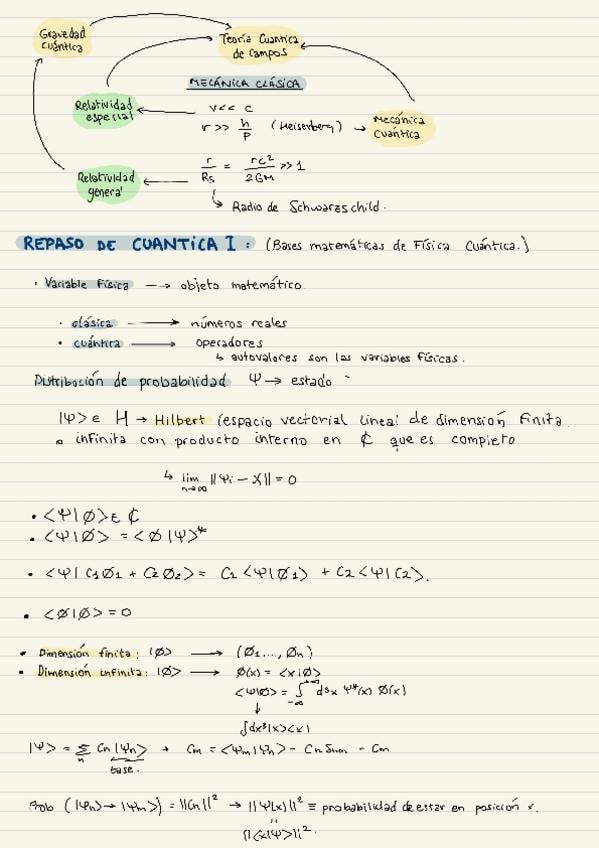 Gravedad cuántica
Teoría Cuantica de Campos
MECÁNICA CLÁSICA
Relatividad especial
v << c
r >> h/p (Heisenberg) →
Mecánica Cuántica
r/Rs = rc²/2GM >> 1
Relatividad general
↳ Radio de Schwarzschild.
REPASO DE CUANTICA I : (Bases matemáticas de Física Cuántica.)
· Variable Física --→ objeto matemático
· clásica ⟶ números reales
· cuántica ⟶ operadores
↳ autovalores son las variables físicas.
Distribución de probabilidad Ψ → estado
|Ψ> ∈ H → Hilbert (espacio vectorial lineal de dimensión finita
o infinita con producto interno en ₵ que es completo
↳ lim n→∞ ||Ψi − X|| = 0
· <Ψ|Ø> ∈ ₵
· <Ψ|Ø> = <Ø|Ψ>*
· <Ψ| C1Ø1 + C2Ø2> = C1<Ψ|Ø1> + C2<Ψ|C2>.
· <Ø|Ø> = 0
· Dimensión finita: |Ø> ⟶ (Ø1..., Øn)
· Dimensión infinita: |Ø> ⟶ Ø(x) = <x|Ø>
<Ψ|Ø> = ∫−∞+∞ d³x Ψ*(x) Ø(x)
↓
∫dx³|x><x|
|Ψ> = Σn Cn|Ψn> → Cm = <Ψm|Ψn> − Cn Snm − Cm
base.
Prob (|Ψn> → |Ψm>) = ||Cn||² → ||Ψ(x)||² ≡ probabilidad de estar en posición x.
||<x|Ψ>||².